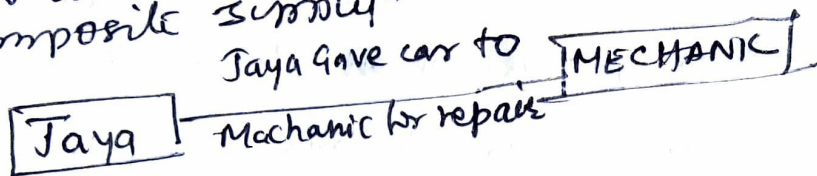 mposite supply
Jaya Gave car to MECHANIC
Jaya Machanic for repair